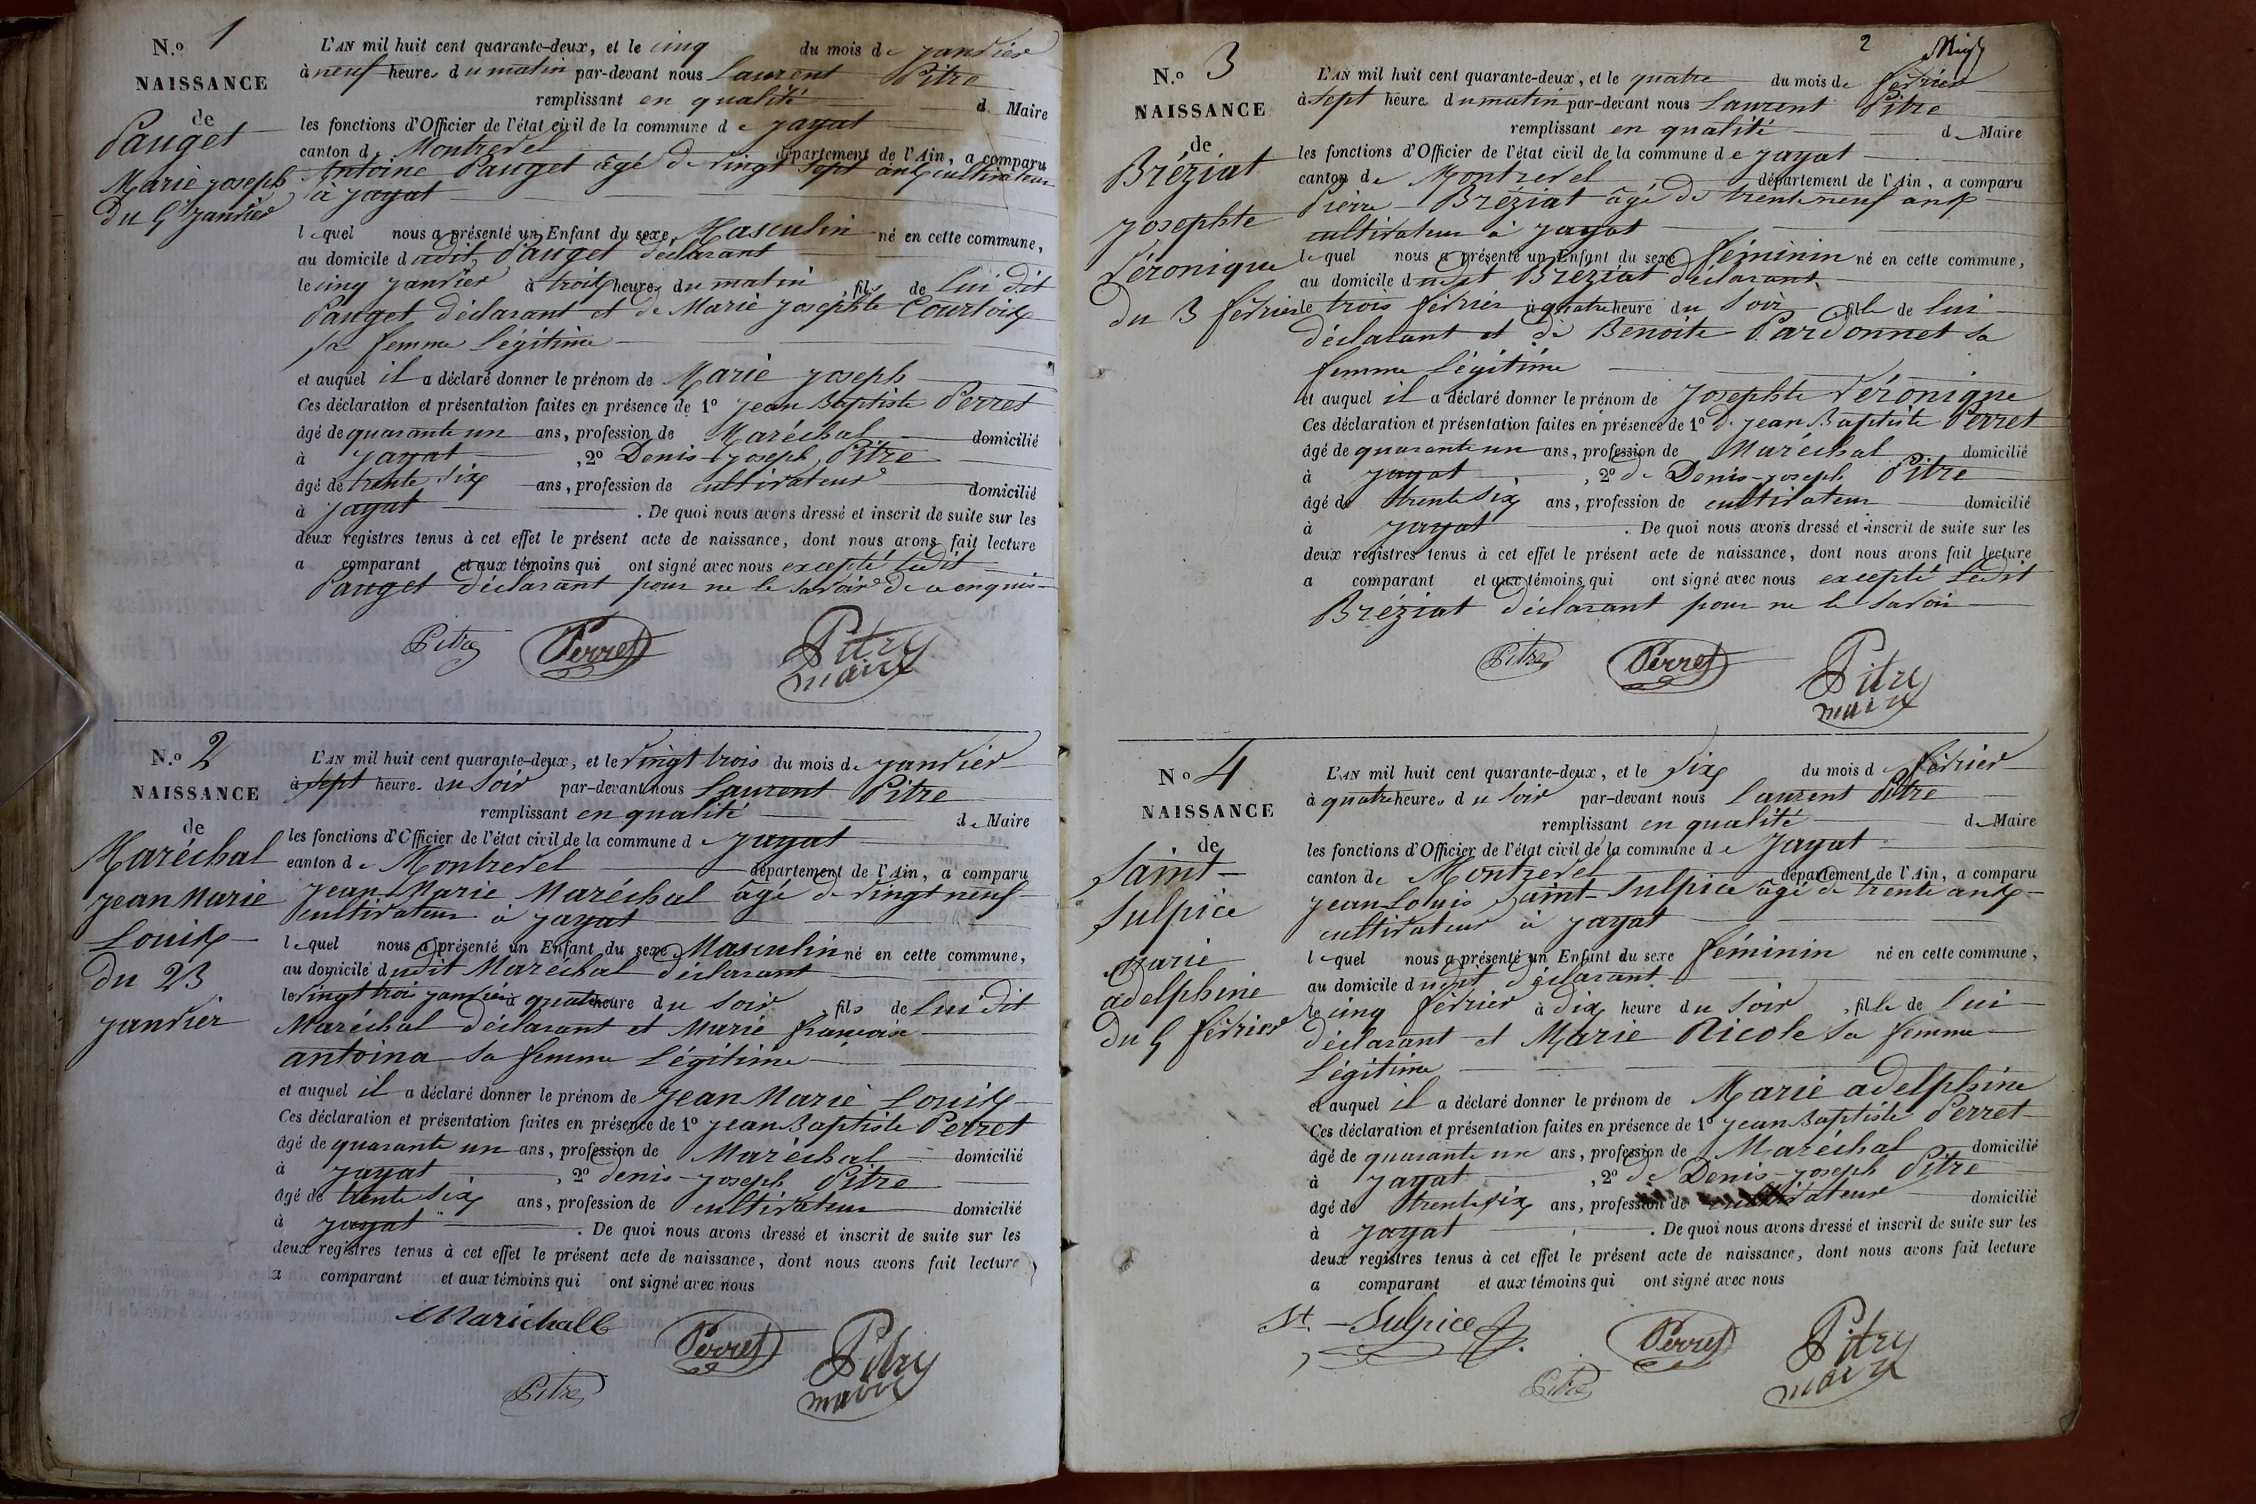 N.o 1
NAISSANCE
de
Pauget
Marie joseph
du 5 janvier
L'AN mil huit cent quarante-deux, et le cinq du mois de janvier
à neuf heures du matin par-devant nous Laurent Pitre
remplissant en qualité d Maire
les fonctions d'Officier de l'état civil de la commune de jayat
canton de Montrevel département de l'Ain, a comparu
Antoine Pauget âgé de vingt sept ans cultivateur
à jayat
lequel nous a présenté un Enfant du sexe Masculin né en cette commune,
au domicile dudit Pauget déclarant
le cinq janvier à trois heures du matin, fils de lui dit
Pauget déclarant et de Marie josephte Courtois
sa femme légitime
et auquel il a déclaré donner le prénom de Marie joseph
Ces déclaration et présentation faites en présence de 1o jean Baptiste Perret
âgé de quarante un ans, profession de Maréchal domicilié
à jayat , 2o Denis-joseph Pitre
âgé de trente six ans, profession de cultivateur domicilié
à jayat . De quoi nous avons dressé et inscrit de suite sur les
deux registres tenus à cet effet le présent acte de naissance, dont nous avons fait lecture
a comparant et aux témoins qui ont signé avec nous excepté ledit
Pauget déclarant pour ne le savoir de ce enquis
Pitre Perret Pitre
maire
N.o 2
NAISSANCE
de
Maréchal
jean Marie
Louis
du 23
janvier
L'AN mil huit cent quarante-deux, et le vingt trois du mois de janvier
à sept heure du soir par-devant nous Laurent Pitre
remplissant en qualité de Maire
les fonctions d'Officier de l'état civil de la commune de jayat
canton de Montrevel département de l'Ain, a comparu
jean Marie Maréchal âgé de vingt neuf
cultivateur à jayat
lequel nous a présenté un Enfant du sexe Masculin né en cette commune,
au domicile dudit Maréchal déclarant
le vingt trois janvier à quatre heure du soir, fils de lui dit
Maréchal déclarant et Marie françoise
antoina sa femme légitime
et auquel il a déclaré donner le prénom de jean Marie Louis
Ces déclaration et présentation faites en présence de 1o jean Baptiste Perret
âgé de quarante un ans, profession de Maréchal domicilié
à jayat , 2o denis-joseph Pitre
âgé de trente six ans, profession de cultivateur domicilié
à jayat . De quoi nous avons dressé et inscrit de suite sur les
deux registres tenus à cet effet le présent acte de naissance, dont nous avons fait lecture
a comparant et aux témoins qui ont signé avec nous
Maréchall Perret Pitre
maire
Pitre
2
N.o 3
NAISSANCE
de
Bréziat
josephte
Véronique
du 3 février
L'AN mil huit cent quarante-deux, et le quatre du mois de février
à sept heure du matin par-devant nous Laurent Pitre
remplissant en qualité d Maire
les fonctions d'Officier de l'état civil de la commune de jayat
canton de Montrevel département de l'Ain, a comparu
Pierre Bréziat âgé de trente neuf ans
cultivateur à jayat
lequel nous a présenté un Enfant du sexe féminin né en cette commune,
au domicile dudit Bréziat déclarant
le trois février à quatre heure du soir fille de lui
déclarant et de Benoite Pardonnet sa
femme légitime
et auquel il a déclaré donner le prénom de josephte Véronique
Ces déclaration et présentation faites en présence de 1o de jean Baptiste Perret
âgé de quarante un ans, profession de Maréchal domicilié
à jayat , 2o de Denis-joseph Pitre
âgé de trente six ans, profession de cultivateur domicilié
à jayat . De quoi nous avons dressé et inscrit de suite sur les
deux registres tenus à cet effet le présent acte de naissance, dont nous avons fait lecture
a comparant et aux témoins qui ont signé avec nous excepté ledit
Bréziat déclarant pour ne le savoir
Pitre Perret Pitre
maire
No 4
NAISSANCE
de
Saint-
Sulpice
marie
adelphine
du 5 février
L'AN mil huit cent quarante-deux, et le six du mois de février
à quatre heures du soir par-devant nous Laurent Pitre
remplissant en qualité de Maire
les fonctions d'Officier de l'état civil de la commune de jayat
canton de Montrevel département de l'Ain, a comparu
jean Louis Saint-Sulpice âgé de trente ans
cultivateur à jayat
lequel nous a présenté un Enfant du sexe féminin né en cette commune,
au domicile dudit déclarant
le cinq février à dix heure du soir, fille de lui
déclarant et Marie Ricole sa femme
légitime
et auquel il a déclaré donner le prénom de Marie adelphine
Ces déclaration et présentation faites en présence de 1o jean Baptiste Perret
âgé de quarante un ans, profession de Maréchal domicilié
à jayat , 2o de Denis-joseph Pitre
âgé de trente six ans, profession de cultivateur domicilié
à jayat . De quoi nous avons dressé et inscrit de suite sur les
deux registres tenus à cet effet le présent acte de naissance, dont nous avons fait lecture
a comparant et aux témoins qui ont signé avec nous
St.-Sulpice Perret Pitre
maire
Pitre